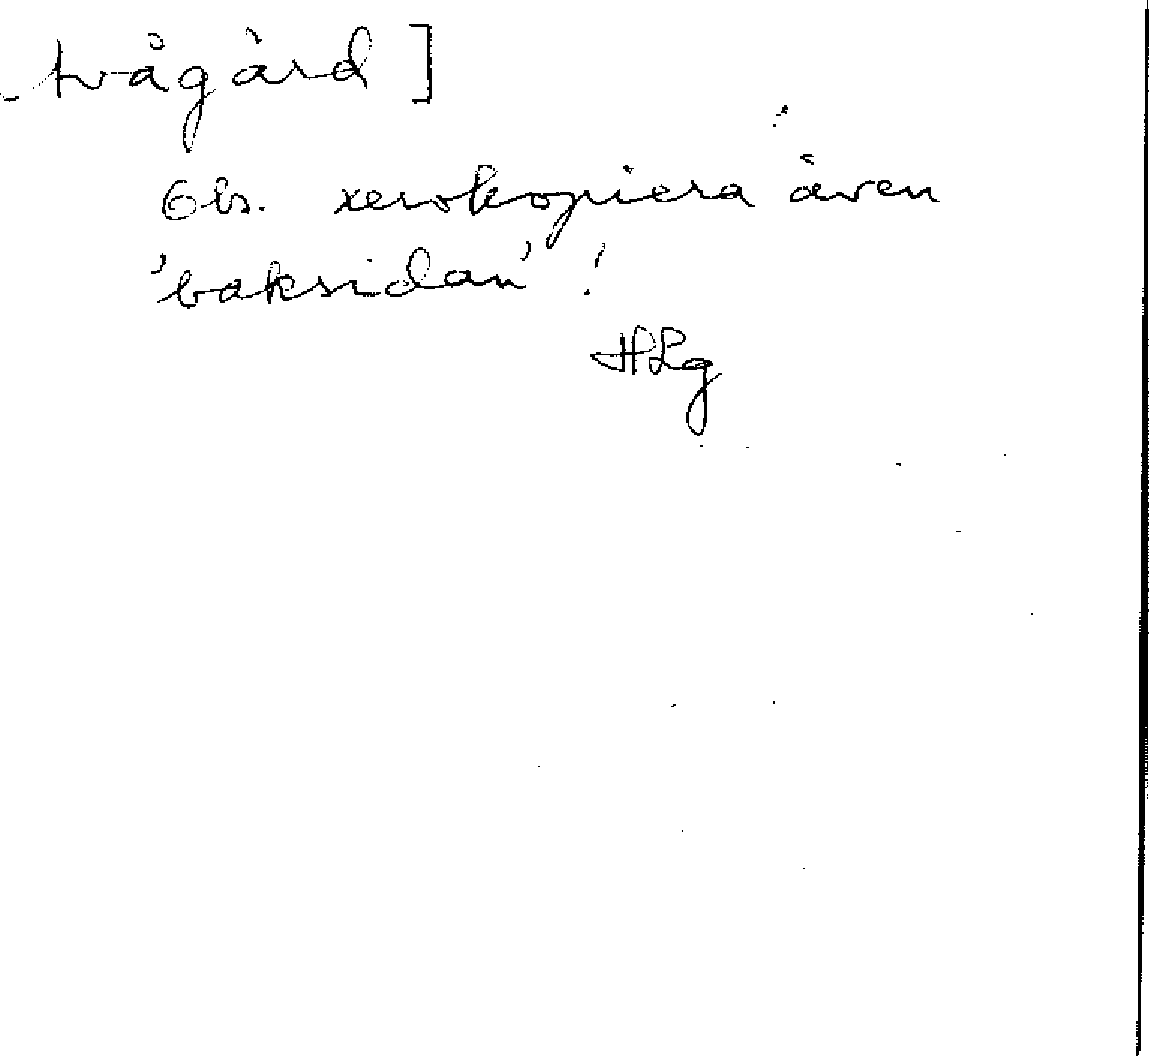 tvågård]
Obs. xerokopiera även
'baksidan'!
HLg